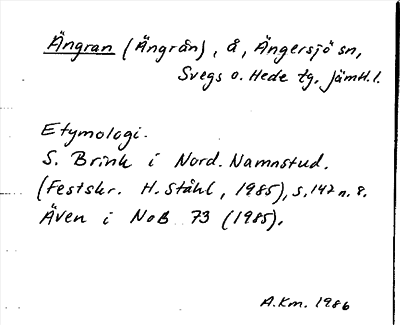 Ängran (Ängrån), å, Ängersjö sn,
Svegs o. Hede tg, Jämtl. l.
Etymologi.
S. Brink i Nord. Namnstud.
(Festskr. H. Ståhl, 1985), s. 142 n. 8.
Även i NoB 73 (1985).
A.Km. 1986